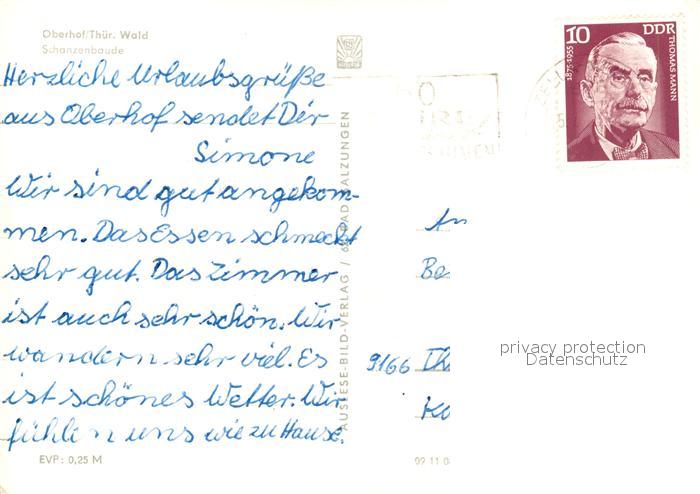 Oberhof/Thür. Wald
Schanzenbaude
Herzliche Urlaubsgrüße
aus Oberhof sendet Dir
Simone
Wir sind gut angekom-
men. Das Essen schmeckt
sehr gut. Das Zimmer
ist auch sehr schön. Wir
wandern sehr viel. Es
ist schönes Wetter. Wir
fühlen uns wie zu Hause.
EVP: 0,25 M
AUSLESE-BILD-VERLAG / BAD SALZUNGEN
10
DDR
1875-1955
THOMAS MANN
An
Be
9166
Ko
privacy protection
Datenschutz